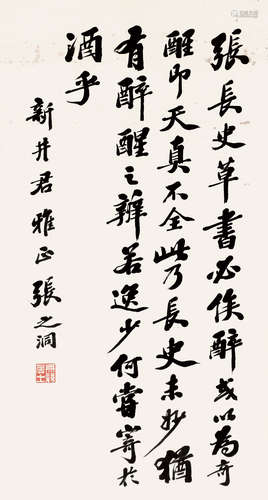 張長史草書必俟醉或以為奇
醒即天真不全此乃長史未妙猶
有醉醒之辨若逸少何嘗寄於
酒乎
新井君雅正 張之洞